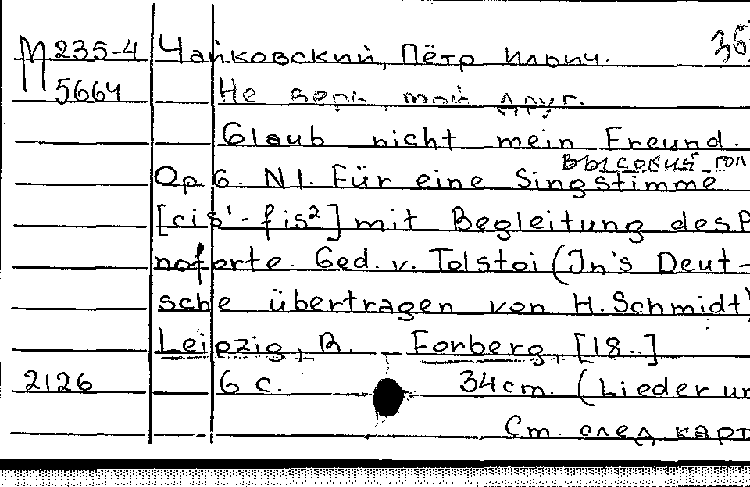 М 235-4 Чайковский, Пётр Ильич. 36
5664 Не верь, мой друг.
Glaub nicht mein Freund.
высокий гол
Op. 6. N 1. Für eine Singstimme
[cis¹-fis²] mit Begleitung des P
noforte. Ged. v. Tolstoi (In's Deut-
sche übertragen von H. Schmidt)
Leipzig, R. Forberg, [18..]
2126 6 с. 34 cm. (Lieder un
См. след. карт